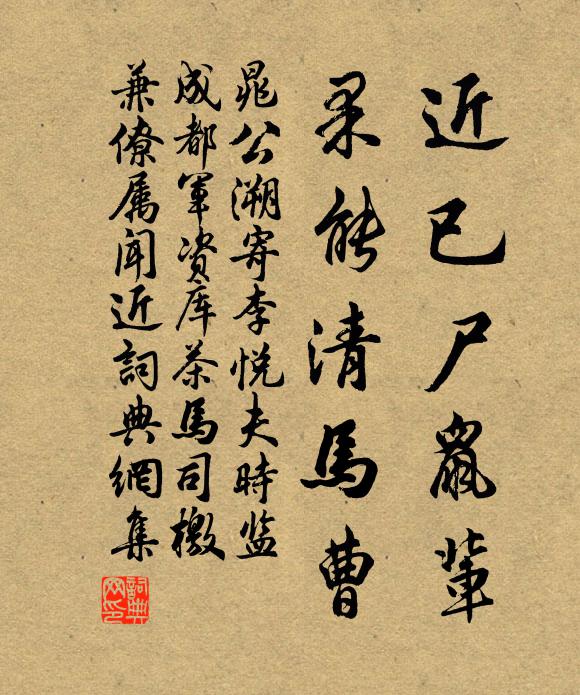 近已尸鼠輩
果能清馬曹
晁公溯寄李悅夫時监
成都軍资库茶馬司檄
兼僚属闻近詞典網集
詞典网印